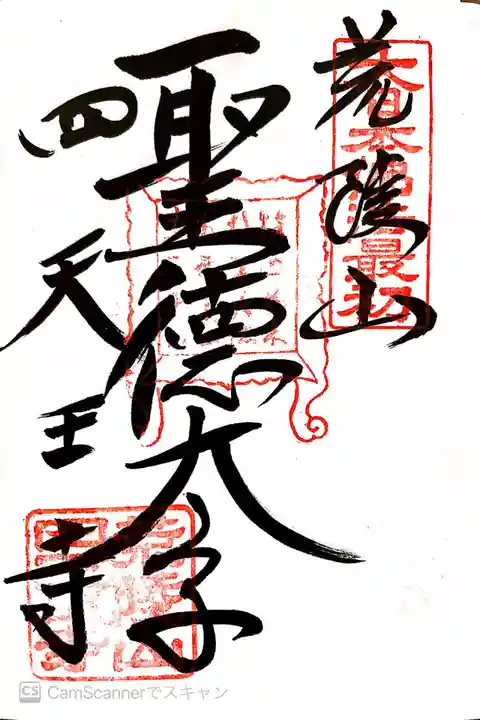 荒陵山
大日本佛法最初
聖徳太子
四天王寺
CS CamScannerでスキャン